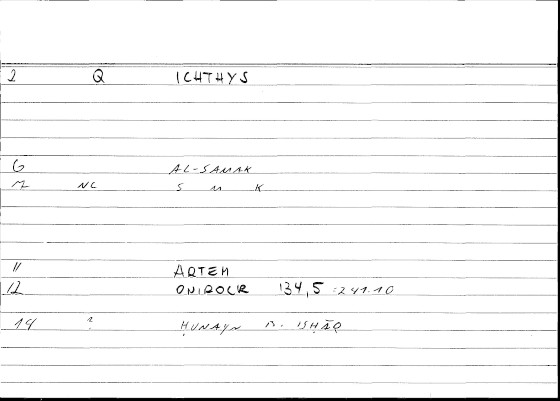 2 Q ICHTHYS
6 AL-SAMAK
7 NC S M K
11 ARTEM
12 ONIROCR 134,5 :241.10
14 ? ḤUNAYN B. ISḤĀQ